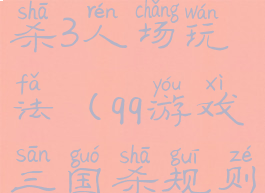 shā rén chǎng wán
杀3人场玩
fǎ yóu xì
法（99游戏
sān guó shā guī zé
三国杀规则